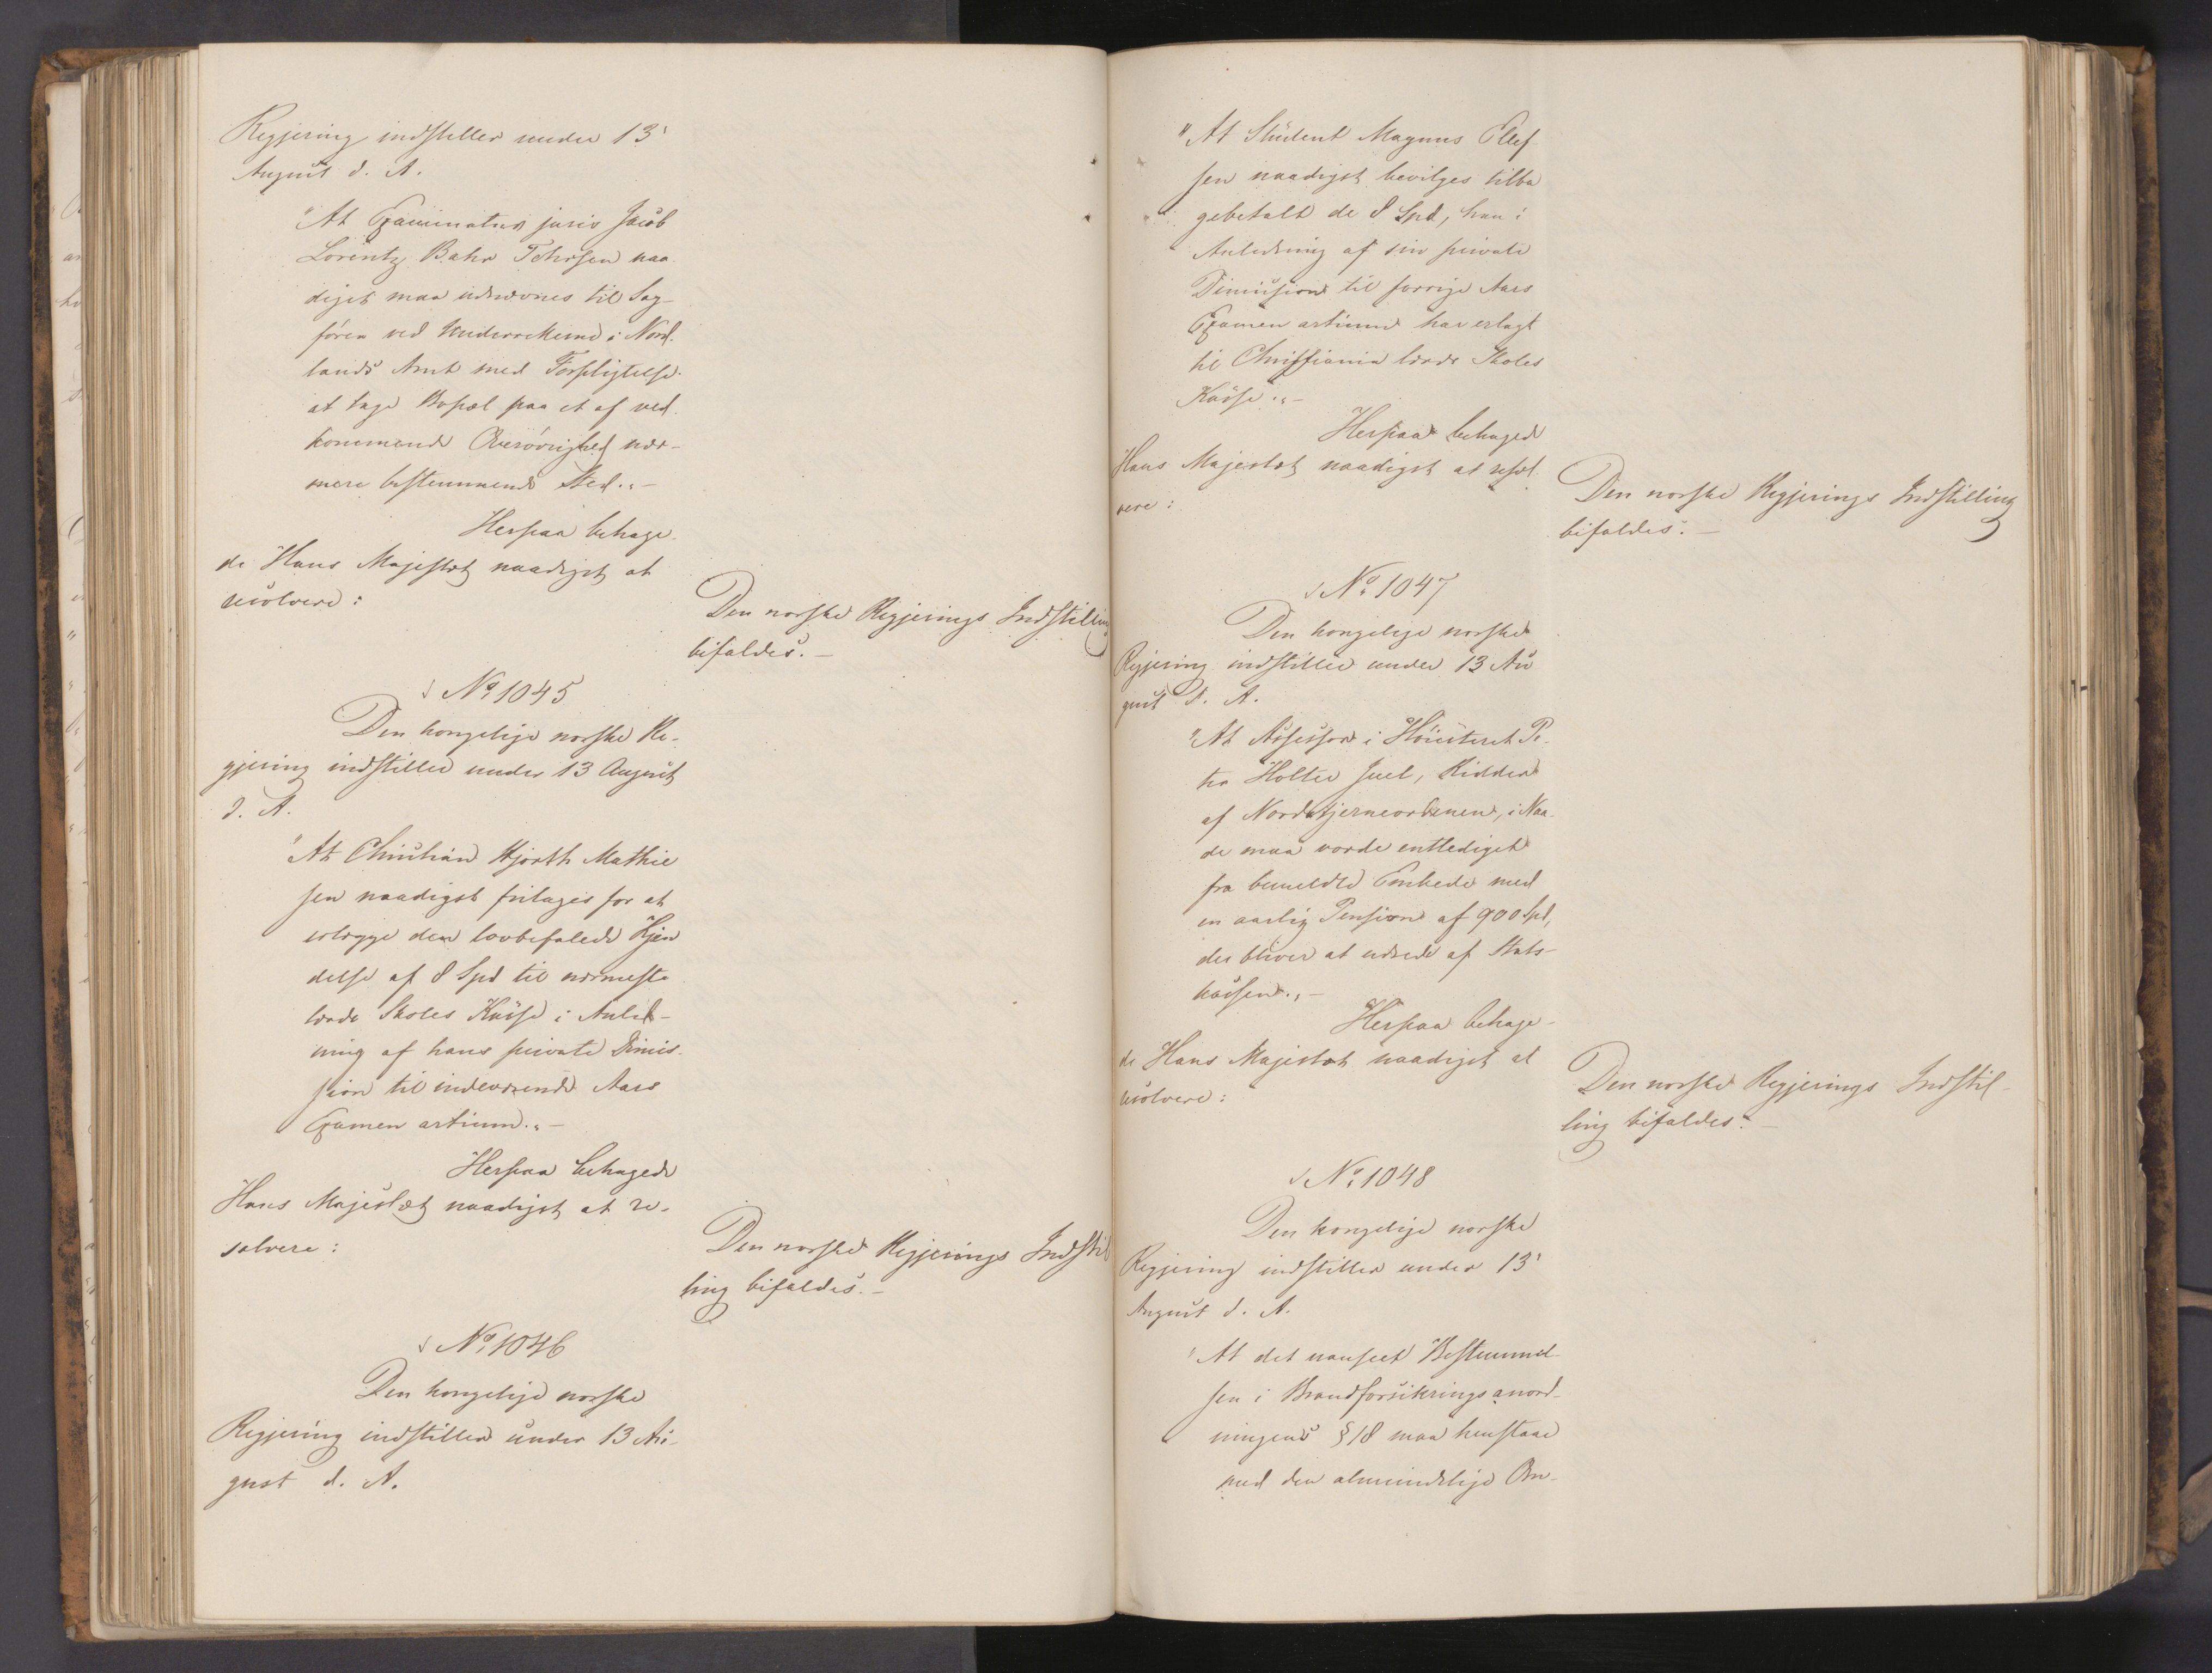 Regjering indstiller under 13'
August d. A.
"At Examinatus juris Jacob
Lorentz Bahr Tehrsen naa
digst maa udnævnes til Sag-
fører ved Underretterne i Nord-
lands Amt med Forpligtelse
at tage Bopæl paa et af ved-
kommende Overøvrighed nær-
mere bestemmende Sted."-
Herpaa behage-
de Hans Majestæt naadigst at
resolvere:
Den norske Regjerings Indstilling
bifaldes.-
No 1045
Den kongelige norske Re-
gjering indstiller under 13 August
d. A.
"At Christian Hjorth Mathie
sen naadigst fritages for at
erlægge den lovbefalede Kjen
delse af 8 Spd til nærmeste
lærde Skoles Kasse i Anled-
ning af hans private Dimis-
sion til indeværende Aars
Examen artium."-
Herpaa behagede
Hans Majestæt naadigst at re-
solvere:
Den norske Regjerings Indstil
ling bifaldes.-
No 1046
Den kongelige norske
Regjering indstiller under 13 Au-
gust d. A.
"At Student Magnus Ellef
sen naadigst bevilges tilba
gebetalt de 8 Spd, han i
Anledning af sin private
Dimission til forrige Aars
Examen artium har erlagt
til Christiania lærde Skoles
Kasse."-
Herpaa behagede
Hans Majestæt naadigst at resol
vere:
Den norske Regjerings Indstilling
bifaldes.-
No 1047
Den kongelige norske
Regjering indstiller under 13 Au
gust d. A.
"At Assessor i Høiesteret Pe-
ter Holter Juel, Ridder
af Nordstjerneordenen, i Naa-
de maa vorde entlediget
fra bemeldte Embede med
en aarlig Pension af 900 Spd,
der bliver at udrede af Stats-
kassen."-
Herpaa behage-
de Hans Majestæt naadigst at
resolvere:
Den norske Regjerings Indstil-
ling bifaldes.-
No 1048
Den kongelige norske
Regjering indstiller under 13'
August d. A.
"At det uanseet Bestemmel-
sen i Brandforsikringsanord-
ningens § 18 maa henstaae
med den almindelige Om-